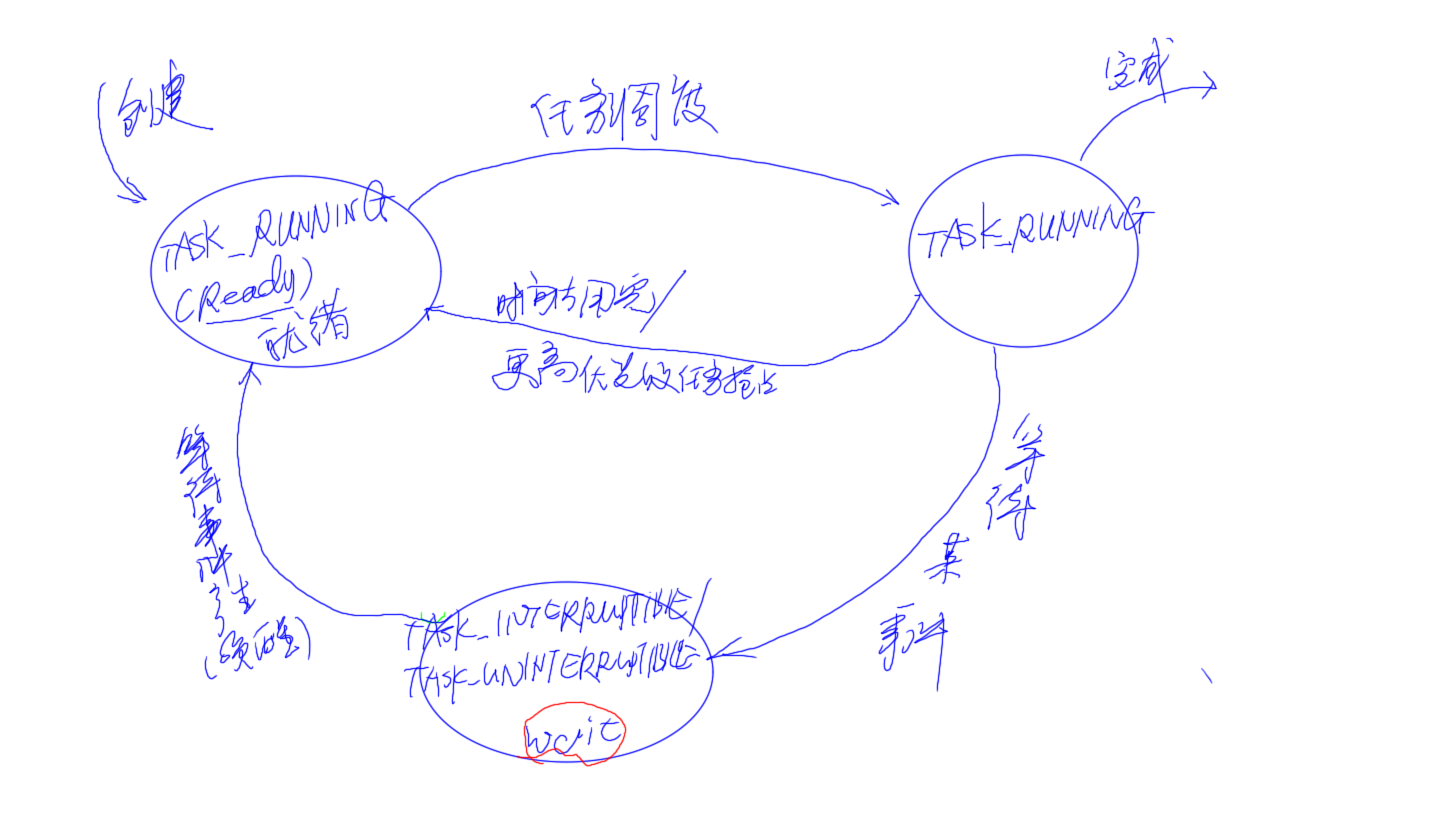 创建
任务调度
完成
TASK_RUNNING
(Ready)
就绪
TASK_RUNNING
时间片用完/
更高优先级任务抢占
等待事件产生
(唤醒)
等待某事件
TASK_INTERRUPTIBLE/
TASK_UNINTERRUPTIBLE
wait